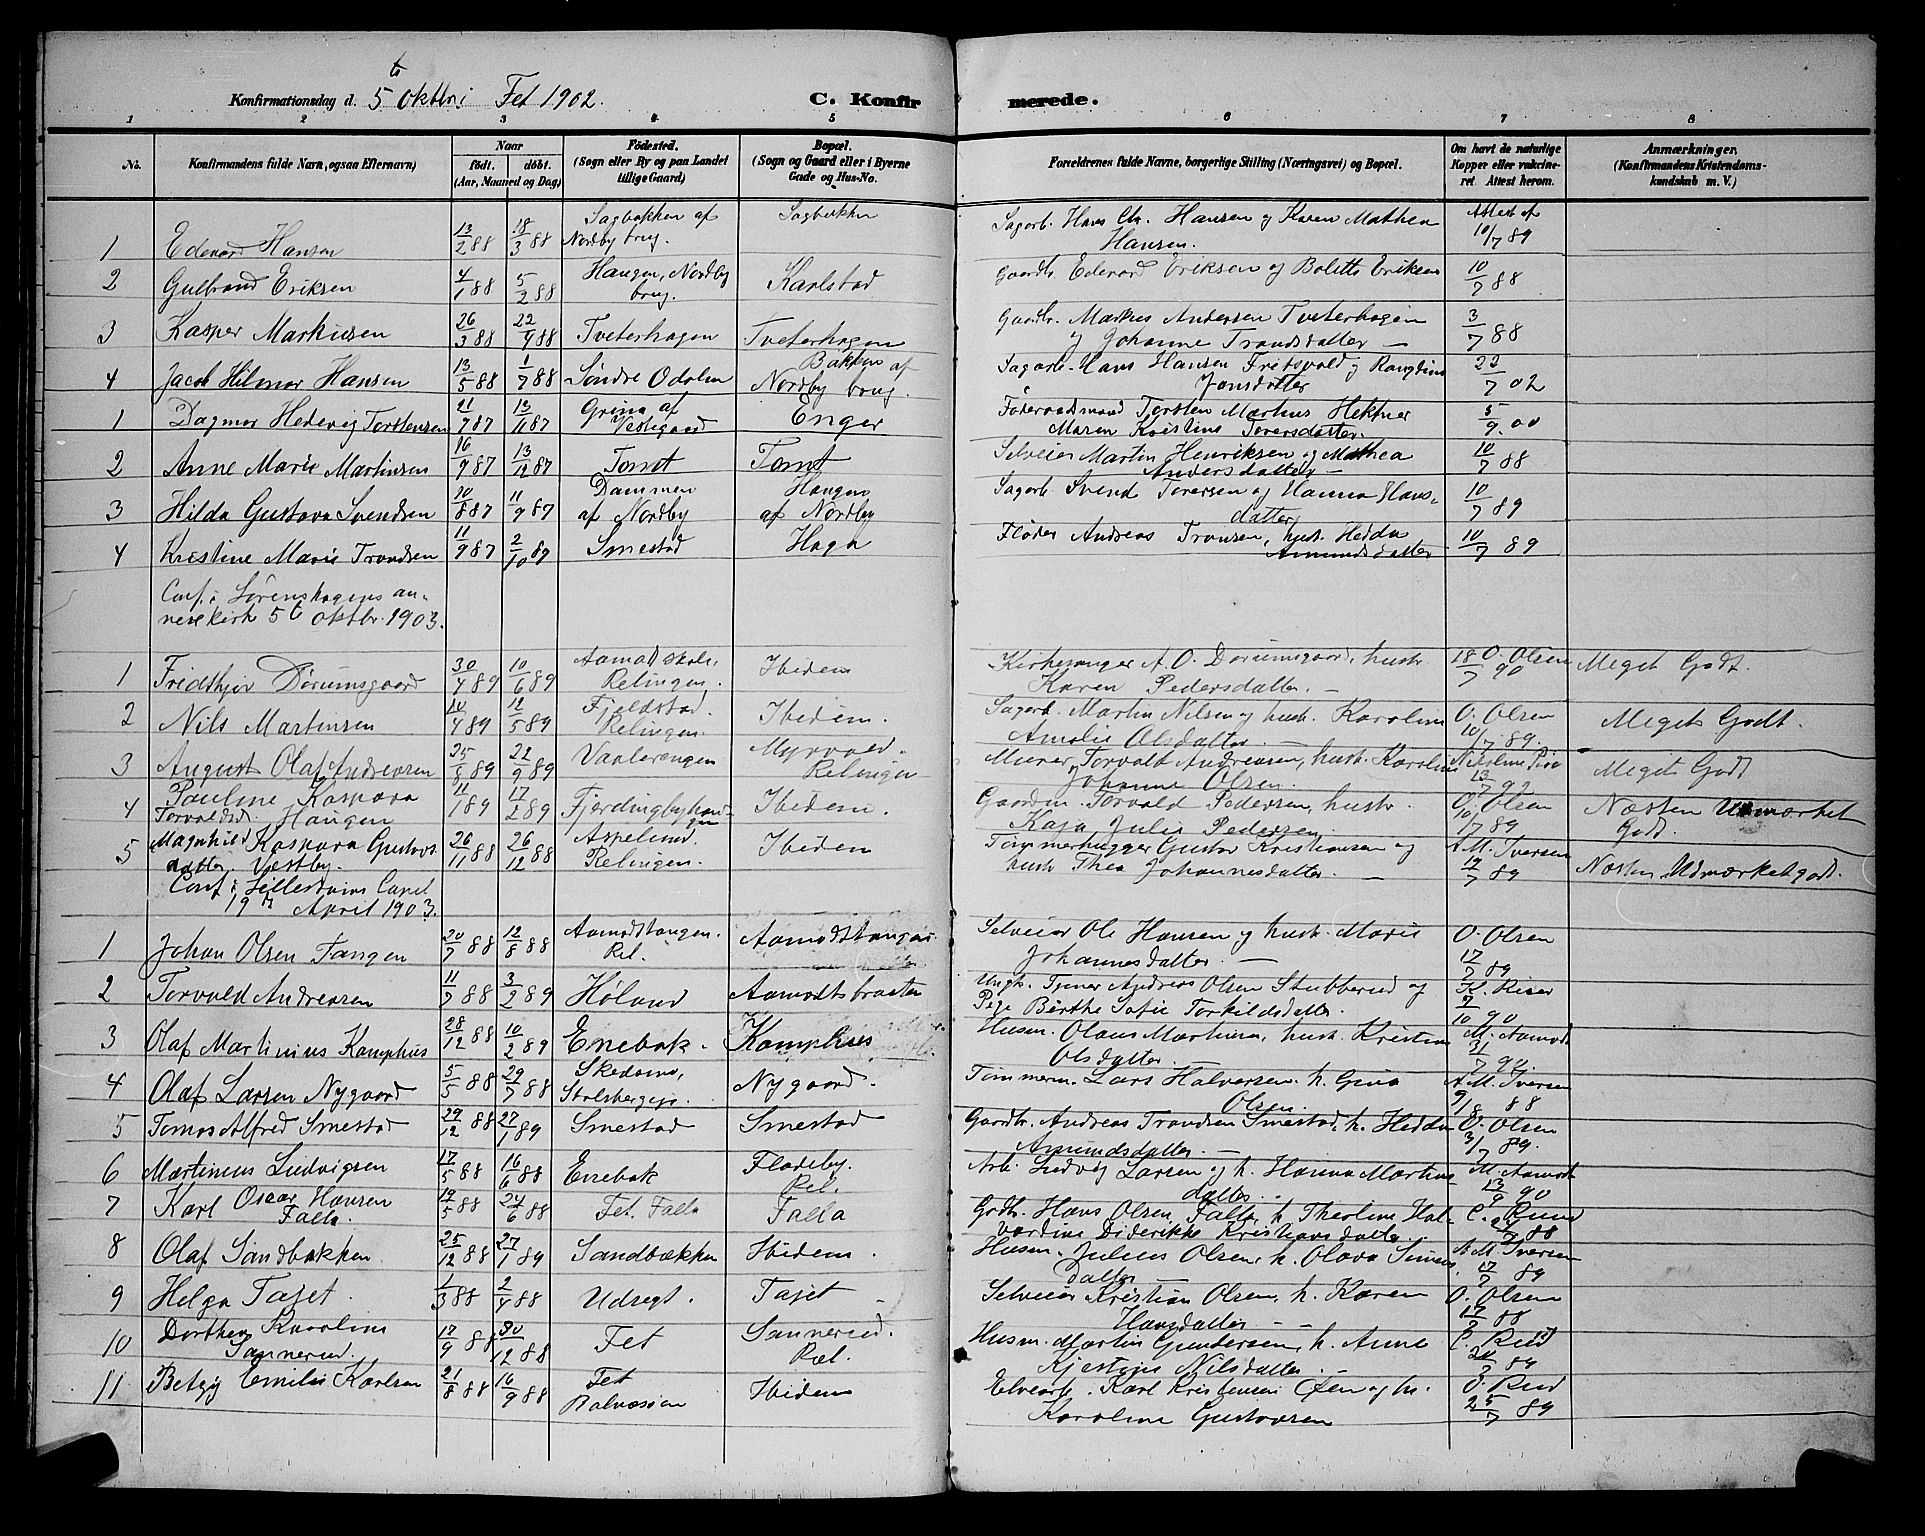 Konfirmationsdag d. 5te Oktbr i Fet 1902.
C. Konfirmerede.
1 2 3 4 5 6 7 8
No.
Konfirmandens fulde Navn, ogsaa Efternavn)
Naar
födt. döbt.
(Aar, Maaned og Dag)
Födested.
(Sogn eller By og paa Landet
tillige Gaard)
Bopæl.
(Sogn og Gaard eller i Byerne
Gade og Hus-No.
Forældrenes fulde Navne, borgerlige Stilling (Næringsvei) og Bopæl.
Om havt de naturlige
Kopper eller vakcine-
ret Attest herom.
Anmærkninger,
(Konfirmandens Kristendoms-
kundskab m. V.)
1 Edevard Hansen 13/2 88 18/3 88 Sagbakken af Nordby brug. Sagbakken Sagarb. Hans Chr. Hansen og Karen Mathea Hansen. Attest af 10/7 89
2 Gulbrand Eriksen 4/1 88 5/2 88 Haugen, Nordby brug. Karlstad Gaardb. Edevard Eriksen og Bolette Eriksen 10/7 88
3 Kasper Markusen 26/3 88 22/4 88 Tveterhagen Tveterhagen Gaardbr. Markus Andersen Tveterhagen og Johanne Trondsdatter — 3/7 88
4 Jacob Hilmar Hansen 13/5 88 1/7 88 Söndre Odalen Bakken af Nordby brug. Sagarb. Hans Hansen Fritsvold og Jonsdatter 22/7 02
1 Dagmar Hedevig Torstensen 21/7 87 13/11 87 Grina af Vestegaard Enger Föderaadsmand Torsten Markus Hektner Maren Kristine Toversdatter. 5/9 00
2 Anne Marie Martinsen 16/9 87 13/12 87 Tomt Tomt Selveier Martin Henriksen og Mathea Andersdatter — 10/7 88
3 Hilda Gustava Svendsen 20/8 87 11/9 87 Dammen af Nordby Haugen af Nordby Sagarb. Svend Torersen og Hanna Hansdatter 10/7 89
4 Kristine Marie Trondsen 11/9 87 2/10 87 Smestad Haga Flöder Andreas Tronsen, hust. Hedda Amundsdatter 10/7 89
Conf. i Lörenskogens an-
nexkirke 5te Oktbr. 1903.
1 Fridthjor Dörumsgaard 30/4 89 10/6 89 Aamodt skole, Relingen. Ibidem Kirkesanger A. O. Dörumsgaard, hustr. Karen Pedersdatter. — 18/7 90 O. Olsen Meget Godt.
2 Nils Martinsen 10/4 89 12/5 89 Fjeldstad. Relingen. Ibidem. Sagarb. Martin Nilsen og hust. Karoline Amalie Olsdatter. — O. Olsen 10/7 89. Meget Godt.
3 August Olaf Andreasen 25/8 89 22/9 89 Vaalerengen Myrvold. Relingen Murer Torvald Andreasen, hust. Karoline Johanne Olsen. Meget Godt
4 Pauline Kaspara Torvaldsd. Haugen 11/1 89 17/2 89 Fjerdingbyhaugen Ibidem. Gaardm. Torvald Pedersen, hustr. Kaja Julie Pedersen. O. Olsen 10/7 89 Næsten Udmærket Godt.
5 Magnhild Kaspara Gustavsdatter Vestby. 26/11 88 26/12 88 Aspelund. Relingen. Ibidem Tömmerhugger Gustav Kristiansen og hust. Thea Johannesdatter. — A. M. Iversen 12/7 89 Næsten Udmærket godt.
Conf. i Lillestrøms Capel
19de April 1903.
1 Johan Olsen Tangen 20/7 88 12/8 88 Aamodttangen. Rel. Aamodttangen. Selveier Ole Hansen og hust. Marie Johannesdatter. — O. Olsen 17/7 89
2 Torvald Andreasen 11/7 88 3/2 89 Höland Aamodtbraaten Ungk. Tjener Andreas Olsen Stubberud og Pige Berthe Sofie Torkildsdatter. 7/10 90
3 Olaf Martinius Kamphus 28/12 88 10/2 89 Enebak. Kamphus Husm. Olaus Martinsen, hust. Kristine Olsdatter. — M. Aamodt 31/7 94.
4 Olaf Larsen Nygaard 5/5 88 29/7 88 Skedsmo, Nygaard. Tömmerm. Lars Halvorsen, h. Gina Olsen. A. M. Iversen 9/8 88
5 Tomas Alfred Smestad 29/12 88 27/1 89 Smestad Smestad Gaardbr. Andreas Trondsen Smestad, h. Hedda Amundsdatter. — O. Olsen 3/7 89.
6 Martinius Ludvigsen 17/5 88 16/6 88 Enebak Flateby. Rel. Arb. Ludvig Larsen og h. Hanna Martinsdatter. M. Aamodt 13/9 90
7 Karl Oscar Hansen Falla. 19/5 88 24/6 88 Fet. Falla Falla Gdbr. Hans Olsen Falla, h. Theoline Halvardine Diderikke Kristiansdatter. C. Ruud 88
8 Olaf Sandbækken 25/12 88 27/1 89 Sandbækken Ibidem. Husm. Julius Olsen, h. Olava Simensdatter — A. M. Iversen 17/7 89
9 Helga Tajet. 1/3 88 2/4 88 Udsigt. Tajet — Selveier Kristian Olsen, h. Karen Hansdatter — O. Olsen 17/7 88
10 Dorthea Karoline Sannerud. 17/9 88 30/12 88 Fet Sannerud. Rel. Husm. Martin Gundersen, h. Anne Kjerstine Nilsdatter. — C. Rud 20/7 89
11 Betzy Emilie Karlsen 21/8 88 16/9 88 Fet Ibidem Elvearb. Karl Kristensen Öien og h. Karoline Gustavsen O. Rud 25/7 89